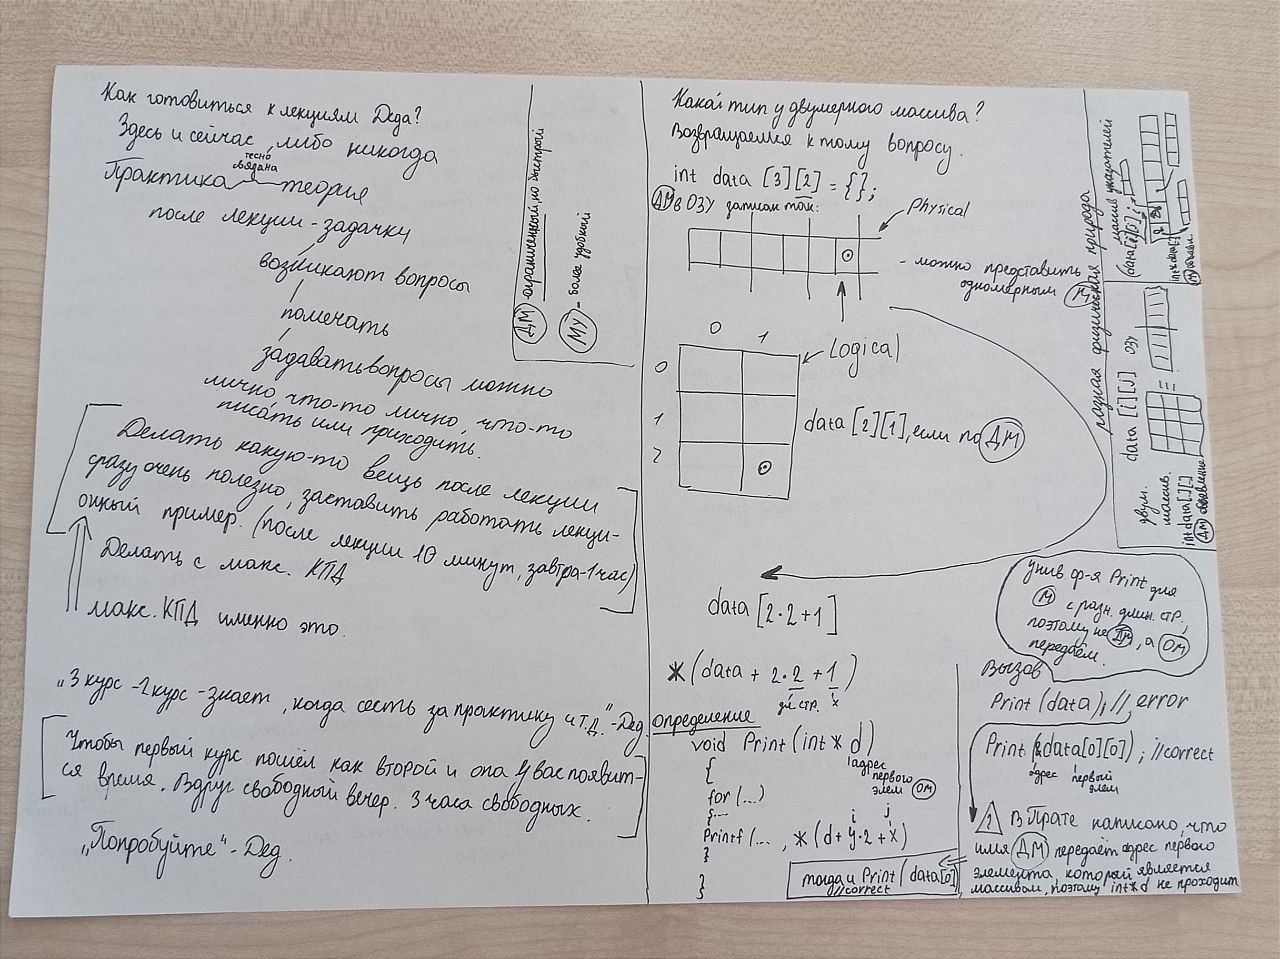 Как готовиться к лекциям Деда?
Здесь и сейчас, либо никогда
тесно
связана
Практика теория
после лекции - задачку
возникают вопросы
помечать
задавать вопросы можно
лично, что-то лично, что-то
писать или приходить.
Делать какую-то вещь после лекции
сразу очень полезно, заставить работать лекци-
онный пример. (после лекции 10 минут, завтра - 1 час)
Делать с макс. КПД
макс. КПД именно это.
„3 курс - 2 курс - знает, когда сесть за практику и т.д.“ - Дед
Чтобы первый курс пошёл как второй и опа у вас появит-
ся время. Вдруг свободный вечер. 3 часа свободных.
„Попробуйте“ - Дед.
ДМ - ограниченный, но быстрый
МУ - более удобный
Какой тип у двумерного массива?
Возвращаемся к тому вопросу.
int data [3][2] = {};
ДМ в ОЗУ записан так:
Physical
- можно представить
одномерным М
0 1
Logical
0
1
2
data [2][1], если по ДМ
data [2·2+1]
*(data + 2·2 + 1)
дл стр. x
определение
void Print (int* d)
{
адрес
первого
элем ОМ
for (...)
{...
i j
Printf (... , *(d + y·2 + x)
}
}
тогда и Print (data[0])
//correct
разная физическая природа
массив указателей
(data[i])[j];
int* data[]
МУ объявл.
data [i][j] ОЗУ
двум.
массив.
int data[][]
ДМ объявление
унив ф-я Print для
М с разн. длин. стр.,
поэтому не ДМ, а ОМ
передаём.
Вызов
Print (data); // error
Print (&data[0][0]); //correct
адрес первый
элем
! В Прате написано, что
имя ДМ передаёт адрес первого
элемента, который является
массивом, поэтому int* d не проходит